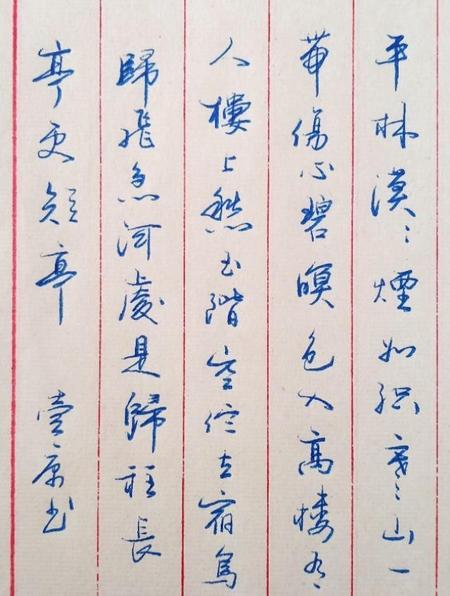 平林漠〻煙如織寒山一
帶傷心碧暝色入高樓有
人樓上愁玉階空佇立宿鳥
歸飛急何處是歸程長
亭更短亭 书